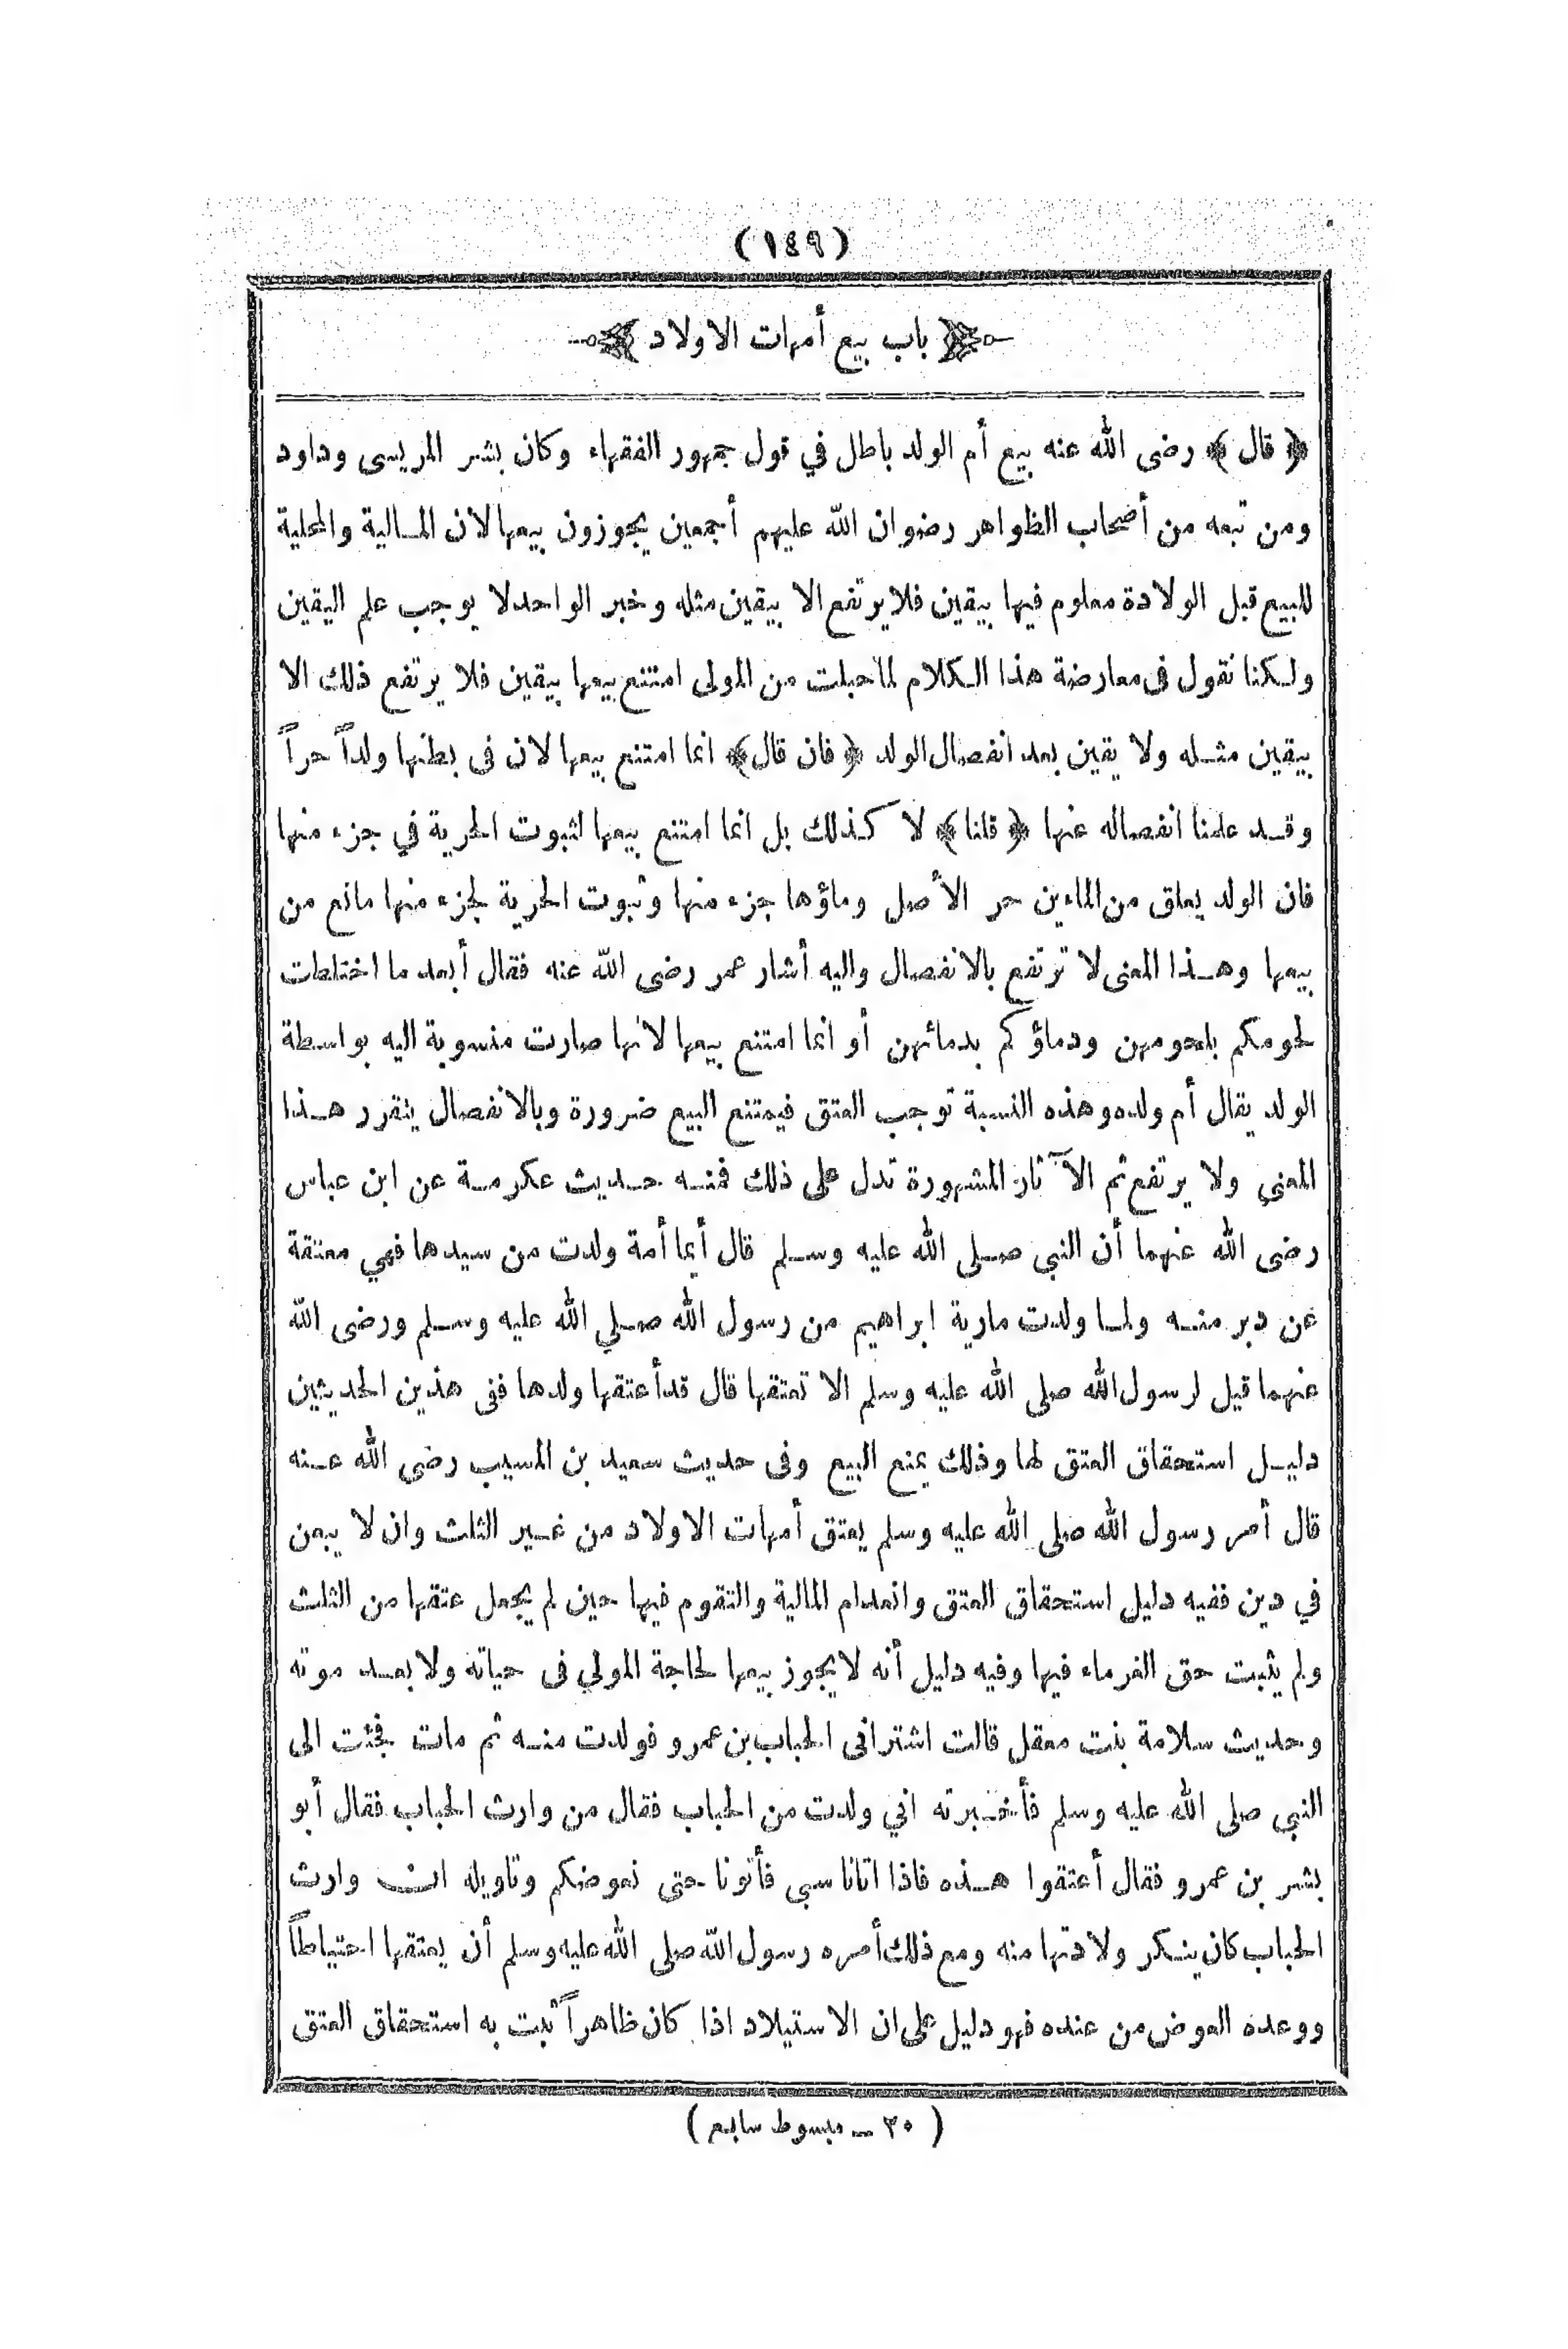 (١٤٩)
باب بيع أمهات الاولاد
﴿ قال ﴾ رضى الله عنه بيع أم الولد باطل في قول جمهور الفقهاء وكان بشر المريسى وداود
ومن تبعه من أصحاب الظواهر رضوان الله عليهم أجمعين يجوزون بيعها لان المالية والمحلية
للبيع قبل الولادة معلوم فيها بيقين فلا يرتفع الا بيقين مثله وخبر الواحد لا يوجب علم اليقين
ولكنا نقول فى معارضة هذا الكلام لما حبلت من المولى امتنع بيعها بيقين فلا يرتفع ذلك الا
بيقين مثله ولا يقين بعد انفصال الولد ﴿ فان قال ﴾ انما امتنع بيعها لان فى بطنها ولداً حراً
وقد علمنا انفصاله عنها ﴿ قلنا ﴾ لا كذلك بل انما امتنع بيعها لثبوت الحرية في جزء منها
فان الولد يعلق من الماءين حر الأصل وماؤها جزء منها وثبوت الحرية لجزء منها مانع من
بيعها وهذا المعنى لا ترتفع بالانفصال واليه أشار عمر رضى الله عنه فقال أبعد ما اختلطت
لحومكم بلحومهن ودماؤكم بدمائهن أو انما امتنع بيعها لانها صارت منسوبة اليه بواسطة
الولد يقال أم ولده وهذه النسبة توجب العتق فيمتنع البيع ضرورة وبالانفصال يتقرر هذا
المعنى ولا يرتفع ثم الآثار المشهورة تدل على ذلك فمنه حديث عكرمة عن ابن عباس
رضى الله عنهما أن النبي صلى الله عليه وسلم قال أيما أمة ولدت من سيدها فهي معتقة
عن دبر منه ولما ولدت مارية ابراهيم من رسول الله صلي الله عليه وسلم ورضى الله
عنهما قيل لرسول الله صلى الله عليه وسلم الا تعتقها قال قد أعتقها ولدها ففى هذين الحديثين
دليل استحقاق العتق لها وذلك يمنع البيع وفى حديث سعيد بن المسيب رضى الله عنه
قال أمر رسول الله صلى الله عليه وسلم يعتق أمهات الاولاد من غير الثلث وان لا يبعن
في دين ففيه دليل استحقاق العتق وانعدام المالية والتقوم فيها حين لم يجعل عتقها من الثلث
ولم يثبت حق الغرماء فيها وفيه دليل أنه لا يجوز بيعها لحاجة المولي فى حياته ولا بعد موته
وحديث سلامة بنت معقل قالت اشترانى الحباب بن عمرو فولدت منه ثم مات فجئت الى
النبي صلى الله عليه وسلم فأخبرته اني ولدت من الحباب فقال من وارث الحباب فقال أبو
بشر بن عمرو فقال أعتقوا هذه فاذا اتانا سبي فأتونا حتى نعوضكم وتاويله ان وارث
الحباب كان ينكر ولادتها منه ومع ذلك أمره رسول الله صلى الله عليه وسلم أن يعتقها احتياطاً
ووعده العوض من عنده فهو دليل على ان الاستيلاد اذا كان ظاهراً ثبت به استحقاق العتق
( ٢٠ – مبسوط سابع )